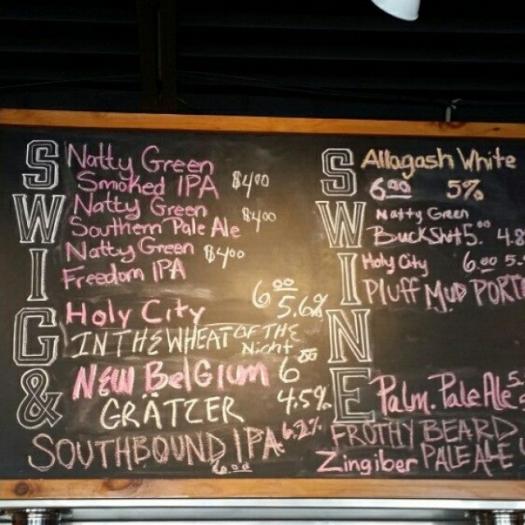 SWIG & SWINE
Natty Green
Smoked IPA $4.00
Natty Green
Southern Pale Ale $4.00
Natty Green $4.00
Freedom IPA
Holy City 6.00 5.6%
IN THE WHEAT OF THE
Night
NEW BELGIUM 6.00
GRÄTZER 4.5%
SOUTHBOUND IPA 6.2%
6.00
Allagash White
6.00 5%
Natty Green
Buckshot 5.00 4.8
Holy City 6.00 5.
Pluff MUD PORT
Palm. Pale Ale 5.
FROTHY BEARD
Zingiber PALE ALE